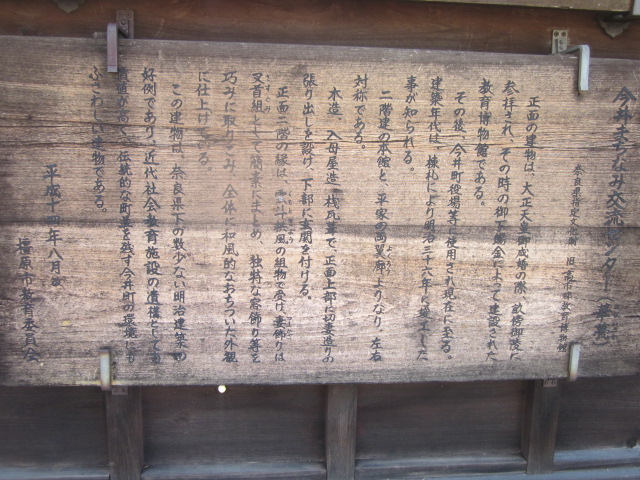 今井まちなみ交流センター(華甍)
奈良県指定文化財 旧高市郡教育博物館
正面の建物は、大正天皇御成婚の際、畝傍御陵に
参拝され、その時の御下賜金によって建設された
教育博物館である。
その後、今井町役場等に使用され現在に至る。
建築年代は、棟札により明治三十六年に竣工した
事が知られる。
二階建の本館と、平家の両翼廊よりなり、左右
対称である。
木造、入母屋造、桟瓦葺で、正面上部に切妻造りの
張り出しを設け、下部に玄関を付ける。
正面二階の縁は、風の組物で受け、妻飾りは
叉首組として簡素にまとめ、独特な窓飾り等を
巧みに取りこみ、全体に和風的なおちついた外観
に仕上げている。
この建物は、奈良県下の数少ない明治建築の
好例であり、近代社会教育施設の遺構としても
価値が高く、伝統的な町並を残す今井町の環境にも
ふさわしい建物である。
平成十四年八月
橿原市教育委員会